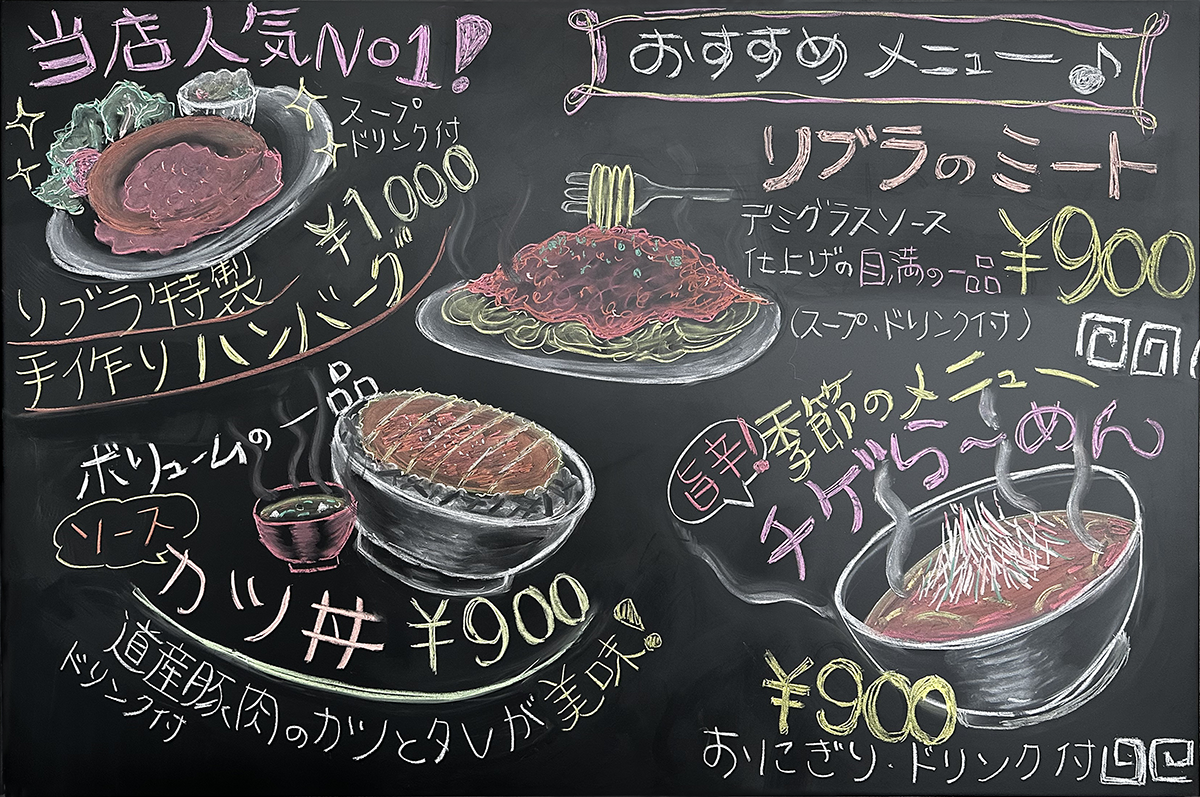 当店人気No1!
スープ
ドリンク付
¥1,000
リブラ特製
手作りハンバーグ
おすすめメニュー♪
リブラのミート
デミグラスソース
仕上げの自満の一品
¥900
(スープ・ドリンク付)
ボリュームの一品
ソース
カツ丼
¥900
道産豚(肉)のカツとタレが美味!
ドリンク付
旨辛!
季節のメニュー
チゲら〜めん
¥900
おりにぎり・ドリンク付